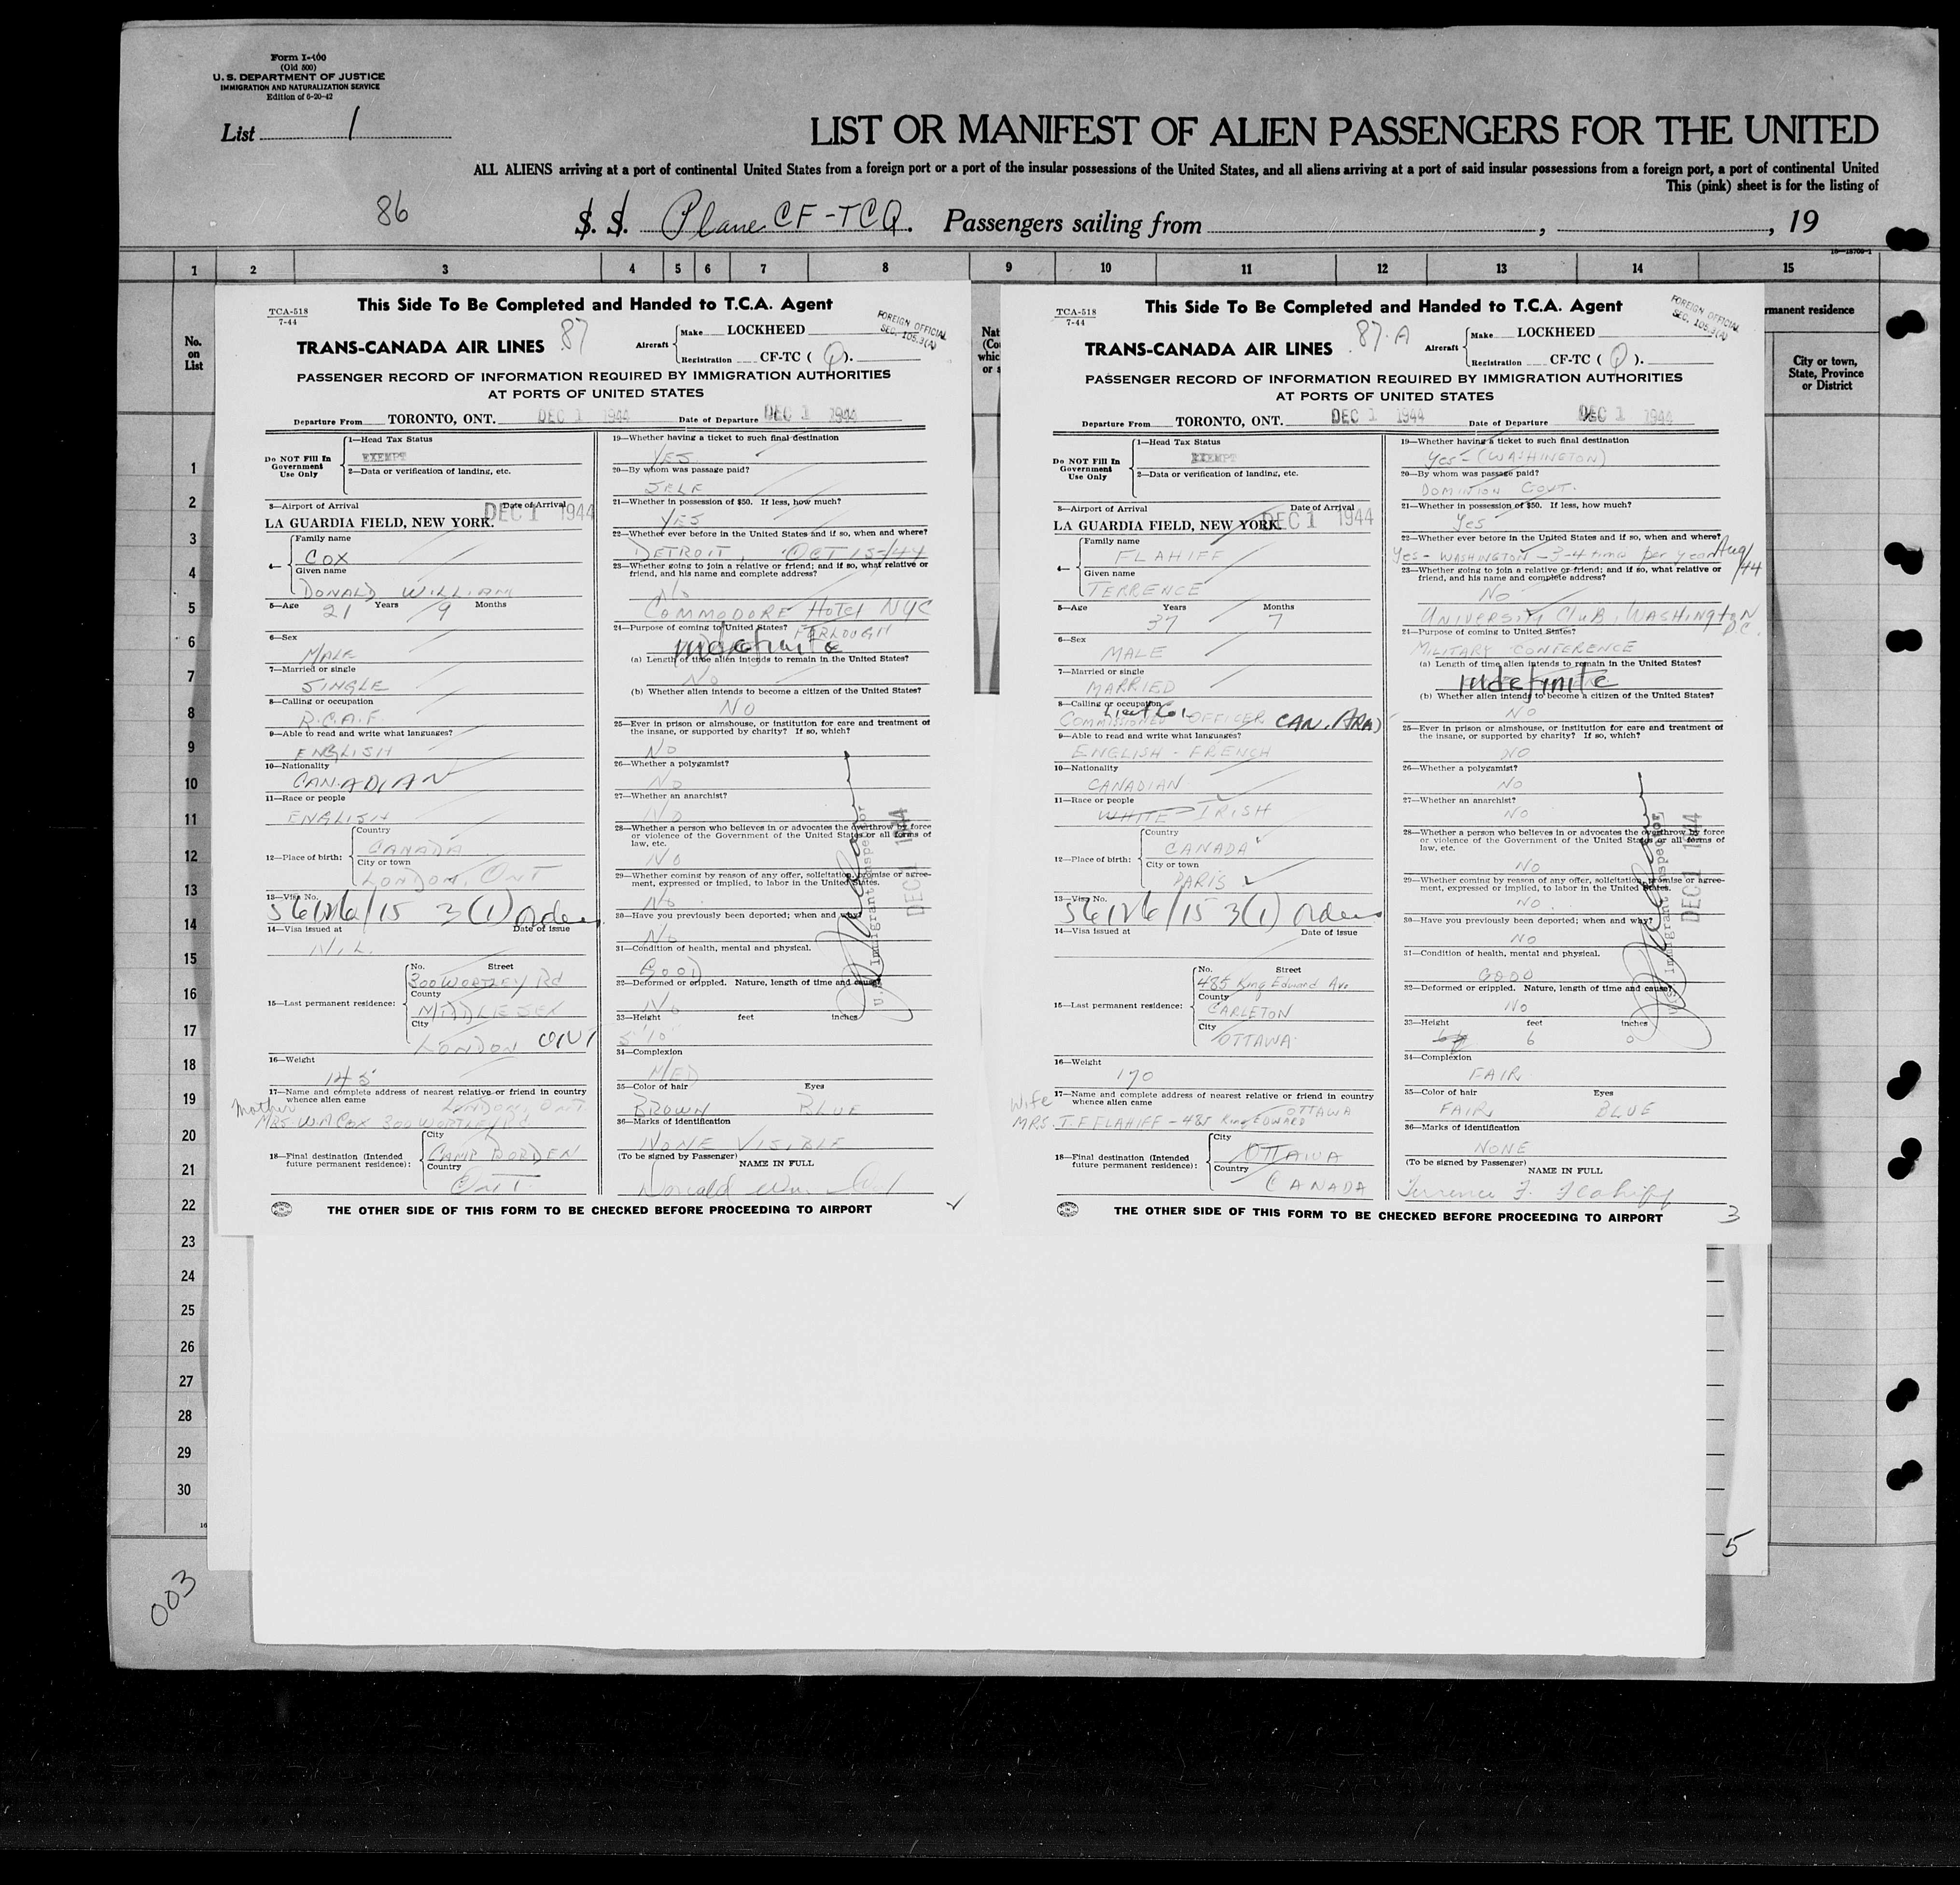 Form I-400
(Old 500)
U. S. DEPARTMENT OF JUSTICE
IMMIGRATION AND NATURALIZATION SERVICE
Edition of 6-20-42
List 1
LIST OR MANIFEST OF ALIEN PASSENGERS FOR THE UNITED
ALL ALIENS arriving at a port of continental United States from a foreign port or a port of the insular possessions of the United States, and all aliens arriving at a port of said insular possessions from a foreign port, a port of continental United
This (pink) sheet is for the listing of
86
S. S. Plane CF-TCQ. Passengers sailing from , , 19
1 2 3 4 5 6 7 8 9 10 11 12 13 14 15
No.
on
List
This Side To Be Completed and Handed to T.C.A. Agent
TCA-518
7-44
87
FOREIGN OFFICIAL
SEC. 105.3(A)
TRANS-CANADA AIR LINES
Aircraft
Make LOCKHEED
Registration CF-TC ( Q ).
PASSENGER RECORD OF INFORMATION REQUIRED BY IMMIGRATION AUTHORITIES
AT PORTS OF UNITED STATES
Departure From TORONTO, ONT. DEC 1 1944 Date of Departure DEC 1 1944
Do NOT Fill In
Government
Use Only
1—Head Tax Status
EXEMPT
2—Data or verification of landing, etc.
3—Airport of Arrival Date of Arrival
LA GUARDIA FIELD, NEW YORK. DEC 1 1944
4—
Family name
COX
Given name
DONALD WILLIAM
5—Age 21 Years 9 Months
6—Sex
MALE
7—Married or single
SINGLE
8—Calling or occupation
R.C.A.F.
9—Able to read and write what languages?
ENGLISH
10—Nationality
CANADIAN
11—Race or people
ENGLISH
12—Place of birth:
Country
CANADA
City or town
LONDON, ONT
13—Visa No.
3(1) Orders
14—Visa issued at Date of issue
NIL.
15—Last permanent residence:
No. Street
300 WORTLEY Rd
County
MIDDLESEX
City
LONDON ONT
16—Weight
145
17—Name and complete address of nearest relative or friend in country
whence alien came
LONDON, ONT
Mother
MRS W.A. COX 300 WORTLEY Rd
18—Final destination (Intended
future permanent residence):
City
CAMP BORDEN
Country
ONT.
19—Whether having a ticket to such final destination
YES
20—By whom was passage paid?
SELF
21—Whether in possession of $50. If less, how much?
YES
22—Whether ever before in the United States and if so, when and where?
DETROIT, OCT 15-/44
23—Whether going to join a relative or friend; and if so, what relative or
friend, and his name and complete address?
No
COMMODORE HOTEL NYC
24—Purpose of coming to United States? FURLOUGH
indefinite
(a) Length of time alien intends to remain in the United States?
No
(b) Whether alien intends to become a citizen of the United States?
NO
25—Ever in prison or almshouse, or institution for care and treatment of
the insane, or supported by charity? If so, which?
NO
26—Whether a polygamist?
NO
27—Whether an anarchist?
NO
28—Whether a person who believes in or advocates the overthrow by force
or violence of the Government of the United States or all forms of
law, etc.
NO
29—Whether coming by reason of any offer, solicitation, promise or agree-
ment, expressed or implied, to labor in the United States.
NO
30—Have you previously been deported; when and why?
NO
31—Condition of health, mental and physical.
GOOD
32—Deformed or crippled. Nature, length of time and cause?
NO
33—Height feet inches
5'10"
34—Complexion
MED
35—Color of hair Eyes
BROWN BLUE
36—Marks of identification
NONE VISIBLE
(To be signed by Passenger) NAME IN FULL
Donald Wm. Cox
U.S. Immigrant Inspector
DEC 1 1944
THE OTHER SIDE OF THIS FORM TO BE CHECKED BEFORE PROCEEDING TO AIRPORT
This Side To Be Completed and Handed to T.C.A. Agent
TCA-518
7-44
87-A
FOREIGN OFFICIAL
SEC. 105.3(A)
TRANS-CANADA AIR LINES
Aircraft
Make LOCKHEED
Registration CF-TC ( Q ).
PASSENGER RECORD OF INFORMATION REQUIRED BY IMMIGRATION AUTHORITIES
AT PORTS OF UNITED STATES
Departure From TORONTO, ONT. DEC 1 1944 Date of Departure DEC 1 1944
Do NOT Fill In
Government
Use Only
1—Head Tax Status
EXEMPT
2—Data or verification of landing, etc.
3—Airport of Arrival Date of Arrival
LA GUARDIA FIELD, NEW YORK. DEC 1 1944
4—
Family name
FLAHIFF
Given name
TERRENCE
5—Age Years Months
37 7
6—Sex
MALE
7—Married or single
MARRIED
8—Calling or occupation
Lieut Col
COMMISSIONED OFFICER CAN. ARMY
9—Able to read and write what languages?
ENGLISH - FRENCH
10—Nationality
CANADIAN
11—Race or people
WHITE IRISH
12—Place of birth:
Country
CANADA
City or town
PARIS
13—Visa No.
3(1) Orders
14—Visa issued at Date of issue
15—Last permanent residence:
No. Street
485 King Edward Ave
County
CARLETON
City
OTTAWA
16—Weight
170
17—Name and complete address of nearest relative or friend in country
whence alien came
Wife OTTAWA
MRS. T.F. FLAHIFF - 485 King EDWARD
18—Final destination (Intended
future permanent residence):
City
OTTAWA
Country
CANADA
19—Whether having a ticket to such final destination
Yes - (WASHINGTON)
20—By whom was passage paid?
DOMINION GOVT.
21—Whether in possession of $50. If less, how much?
Yes
22—Whether ever before in the United States and if so, when and where?
Yes - WASHINGTON - 3-4 times per year Aug/44
23—Whether going to join a relative or friend; and if so, what relative or
friend, and his name and complete address?
No
UNIVERSITY CLUB, WASHINGTON D.C.
24—Purpose of coming to United States?
MILITARY CONFERENCE
(a) Length of time alien intends to remain in the United States?
indefinite
(b) Whether alien intends to become a citizen of the United States?
NO
25—Ever in prison or almshouse, or institution for care and treatment of
the insane, or supported by charity? If so, which?
NO
26—Whether a polygamist?
NO
27—Whether an anarchist?
NO
28—Whether a person who believes in or advocates the overthrow by force
or violence of the Government of the United States or all forms of
law, etc.
NO
29—Whether coming by reason of any offer, solicitation, promise or agree-
ment, expressed or implied, to labor in the United States.
NO.
30—Have you previously been deported; when and why?
NO
31—Condition of health, mental and physical.
GOOD
32—Deformed or crippled. Nature, length of time and cause?
NO
33—Height feet inches
6 0
34—Complexion
FAIR
35—Color of hair Eyes
FAIR BLUE
36—Marks of identification
NONE
(To be signed by Passenger) NAME IN FULL
Terrence F. Flahiff
U.S. Immigrant Inspector
DEC 1 1944
THE OTHER SIDE OF THIS FORM TO BE CHECKED BEFORE PROCEEDING TO AIRPORT
3
rmanent residence
City or town,
State, Province
or District
1
2
3
4
5
6
7
8
9
10
11
12
13
14
15
16
17
18
19
20
21
22
23
24
25
26
27
28
29
30
5
003